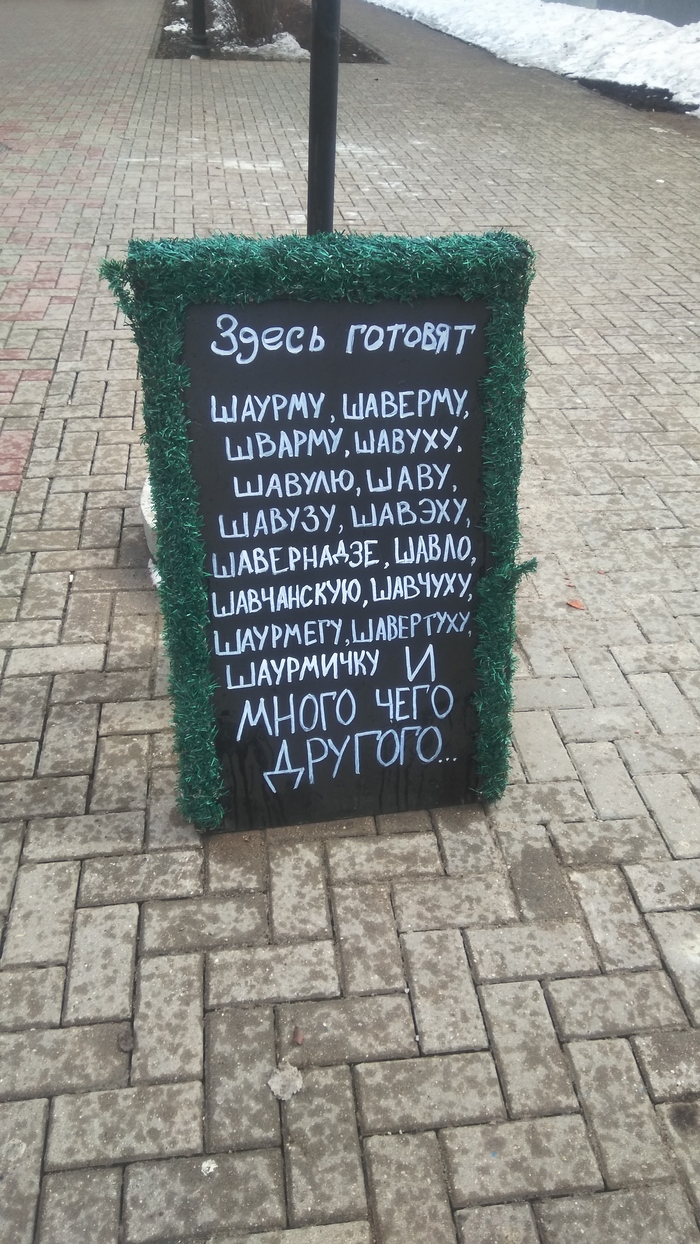 Здесь готовят
ШАУРМУ, ШАВЕРМУ,
ШВАРМУ, ШАВУХУ,
ШАВУЛЮ, ШАВУ,
ШАВУЗУ, ШАВЭХУ,
ШАВЕРНАДЗЕ, ШАВЛО,
ШАВЧАНСКУЮ, ШАВЧУХУ,
ШАУРМЕГУ, ШАВЕРТУХУ,
ШАУРМИЧКУ И
МНОГО ЧЕГО
ДРУГОГО...